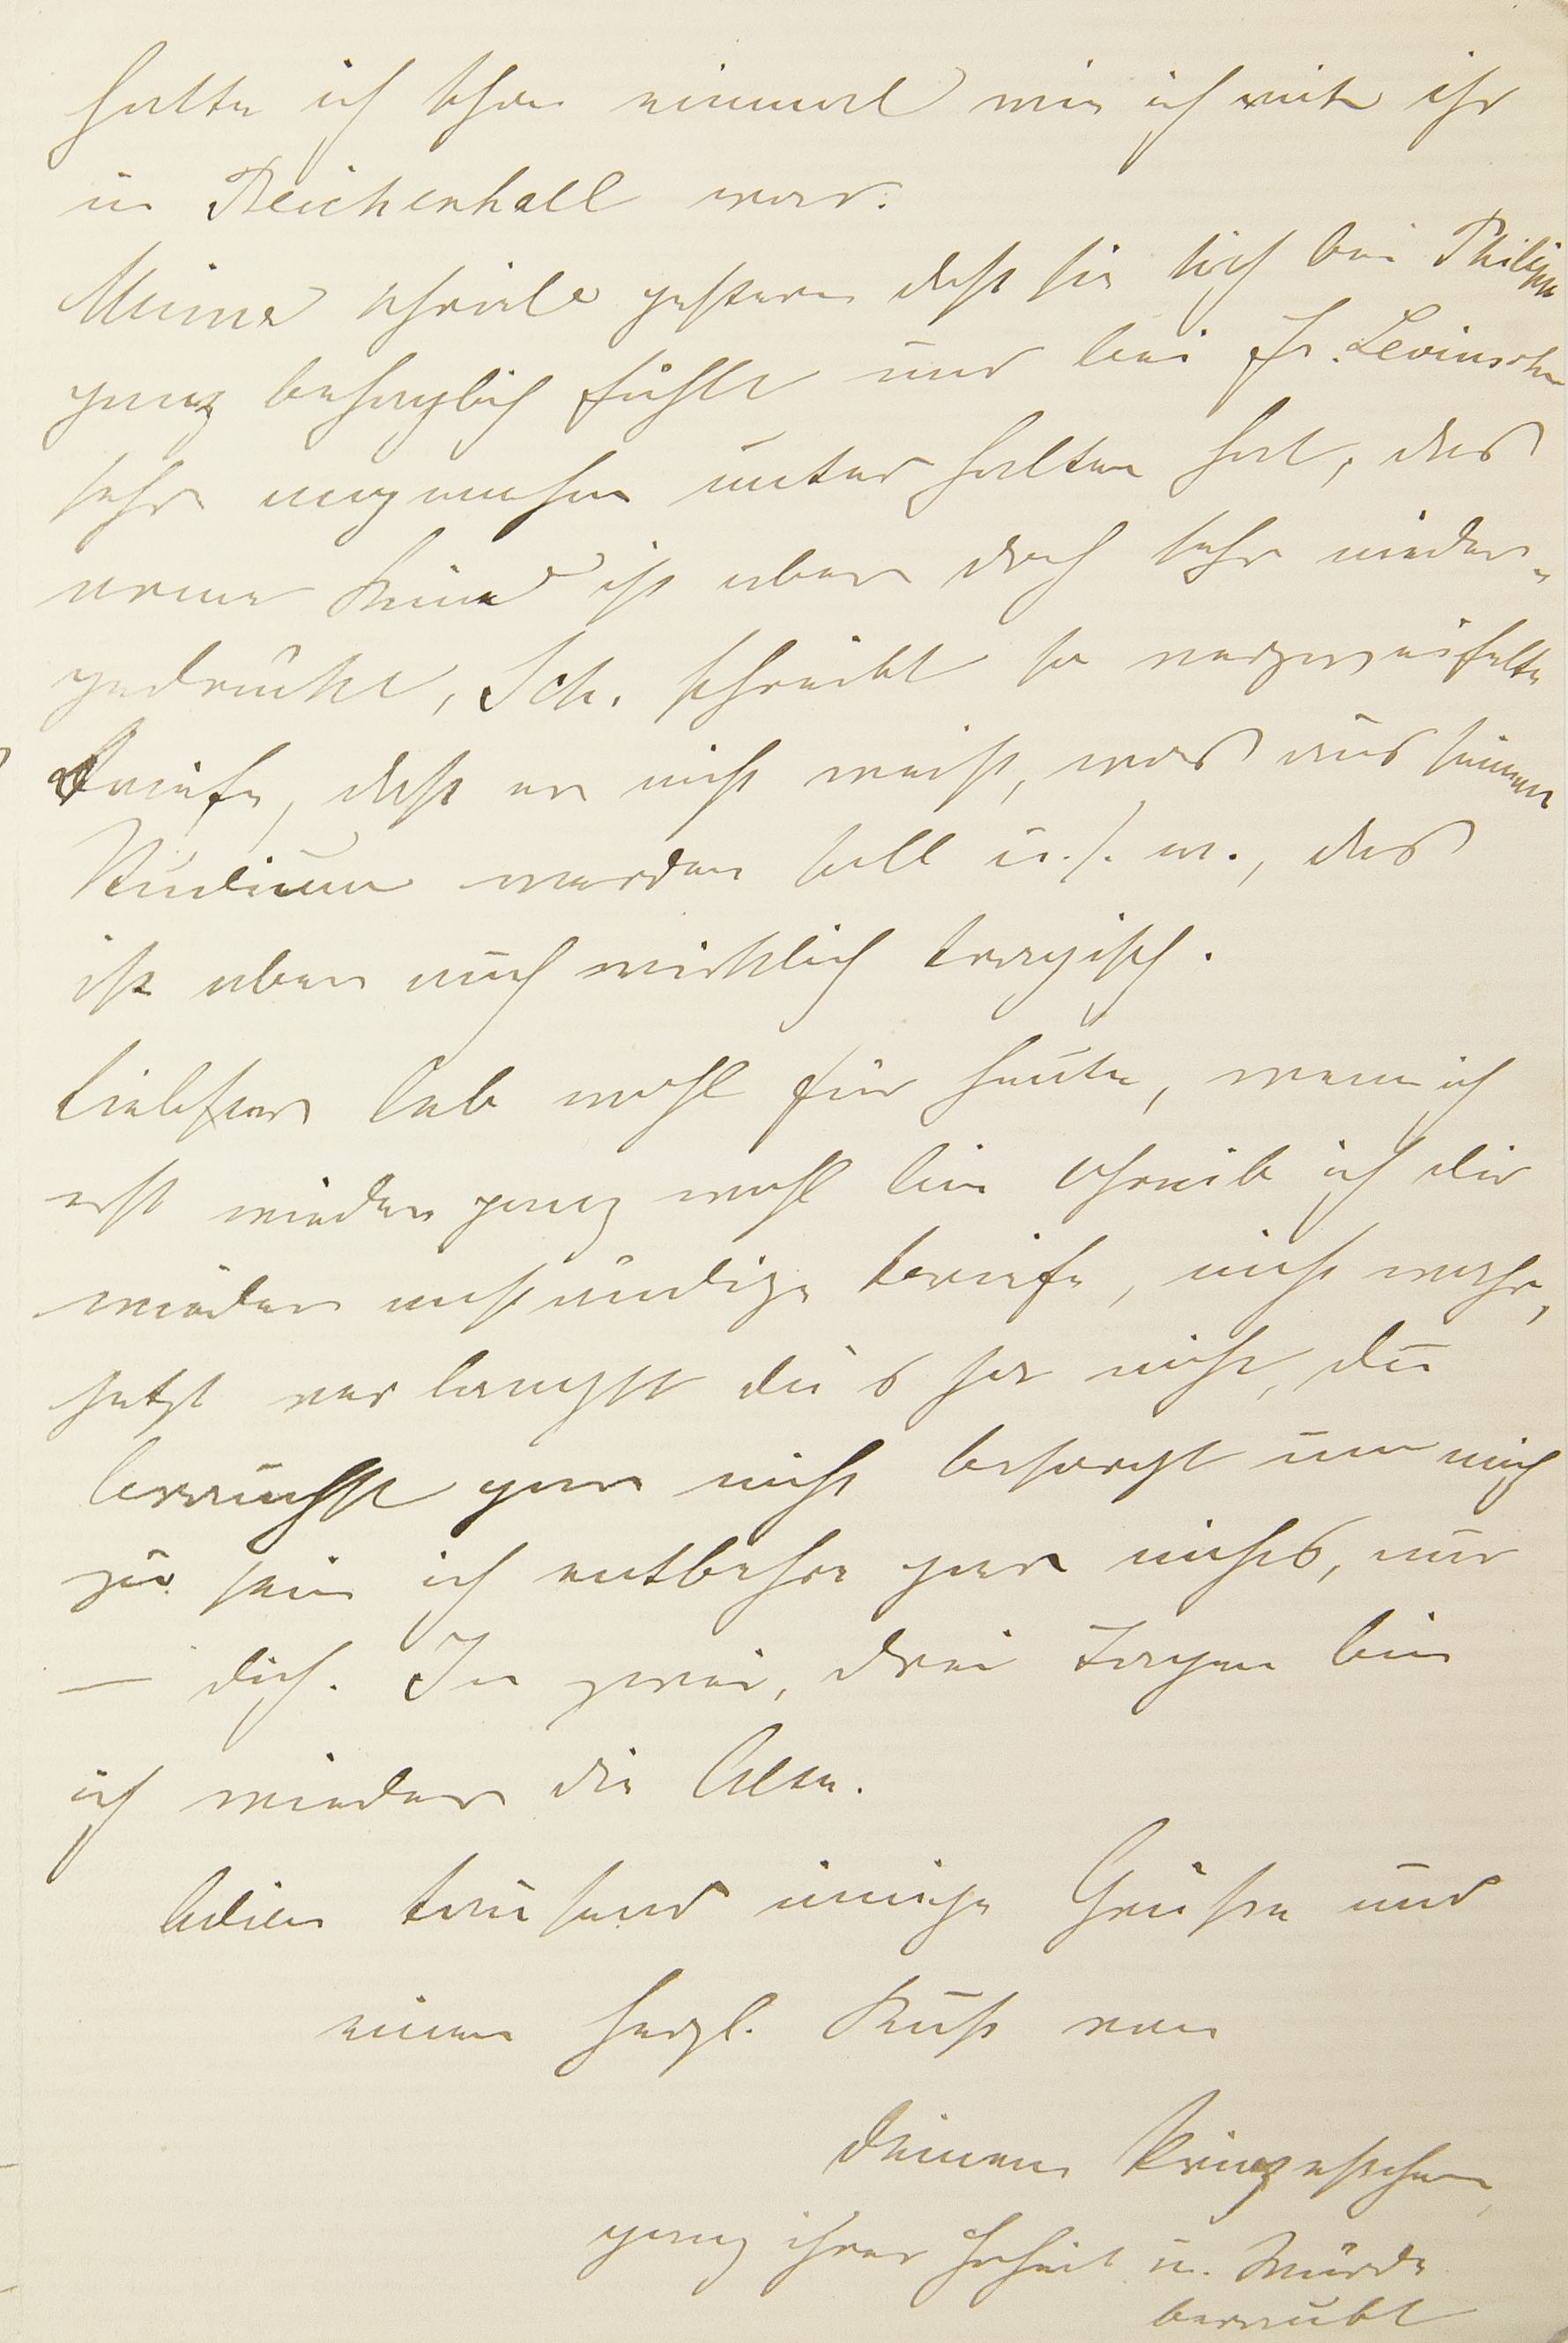 hatte ich schon einmal wie ich mit ihr
in Reichenhall war.
Mime schrieb gestern daß sie sich bei Philipp
ganz behaglich fühlt und bei Fr. Levinsohn
sehr angenehm unterhalten hat, das
arme Kind ist aber doch sehr nieder-
gedrückt, Sch. schreibt so verzweifelte
Briefe, daß er nicht weiß, was aus seinem
Studium werden soll u. s. w., das
ist aber auch wirklich tragisch.
Liebster leb wohl für heute, wenn ich
erst wieder ganz wohl bin schreib ich dir
wieder anständige Briefe, nicht wahr,
jetzt verlangst du's ja nicht, du
brauchst gar nicht besorgt um mich
zu sein ich entbehre gar nichts, nur
— dich. In zwei, drei Tagen bin
ich wieder die Alte.
Adieu tausend innige Grüße und
einen herzl. Kuß von
deinem Prinzeßchen
ganz ihrer Hoheit u. Würde
beraubt